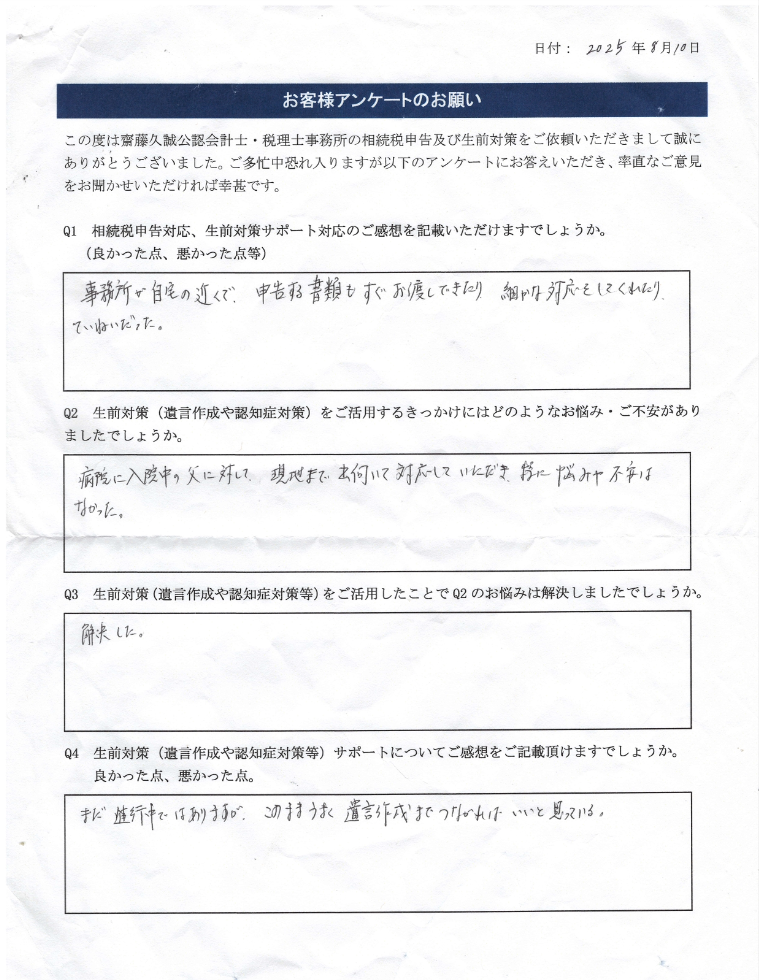 日付： 2025年8月10日
お客様アンケートのお願い
この度は齋藤久誠公認会計士・税理士事務所の相続税申告及び生前対策をご依頼いただきまして誠に
ありがとうございました。ご多忙中恐れ入りますが以下のアンケートにお答えいただき、率直なご意見
をお聞かせいただければ幸甚です。
Q1 相続税申告対応、生前対策サポート対応のご感想を記載いただけますでしょうか。
（良かった点、悪かった点等）
事務所が自宅の近くで、申告する書類もすぐお渡しできたり 細かな対応をしてくれたり、
ていねいだった。
Q2 生前対策（遺言作成や認知症対策）をご活用するきっかけにはどのようなお悩み・ご不安があり
ましたでしょうか。
病院に入院中の父に対して、現地まで出向いて対応していただき、特に悩みや不安は
なかった。
Q3 生前対策（遺言作成や認知症対策等）をご活用したことでQ2のお悩みは解決しましたでしょうか。
解決した。
Q4 生前対策（遺言作成や認知症対策等）サポートについてご感想をご記載頂けますでしょうか。
良かった点、悪かった点。
まだ進行中ではありますが、このままうまく遺言作成までつながればいいと思っている。